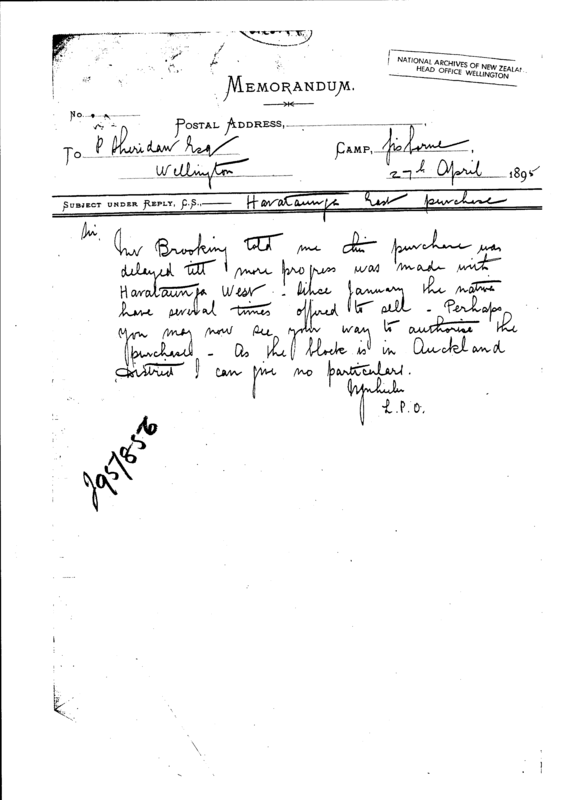 NATIONAL ARCHIVES OF NEW ZEALA
HEAD OFFICE WELLINGTON
MEMORANDUM.
No.
POSTAL ADDRESS,
To P Sheridan Esq
CAMP, Gisborne,
Wellington
27th April 1895
SUBJECT UNDER REPLY, C.S., Harataunga East purchase
Sir.
Mr Brooking told me this purchase was
delayed till more progress was made with
Harataunga West - Since January the natives
have several times offered to sell - Perhaps
you may now see your way to authorise the
purchase - As the block is in Auckland
District I can give no particulars.
L.P.O.
J95/856